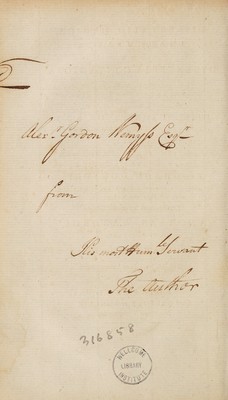 Alexr. Gordon Wemyss Esqr.
from
His most Humle Servant
The Author
316858
WELLCOME
LIBRARY
INSTITUTE